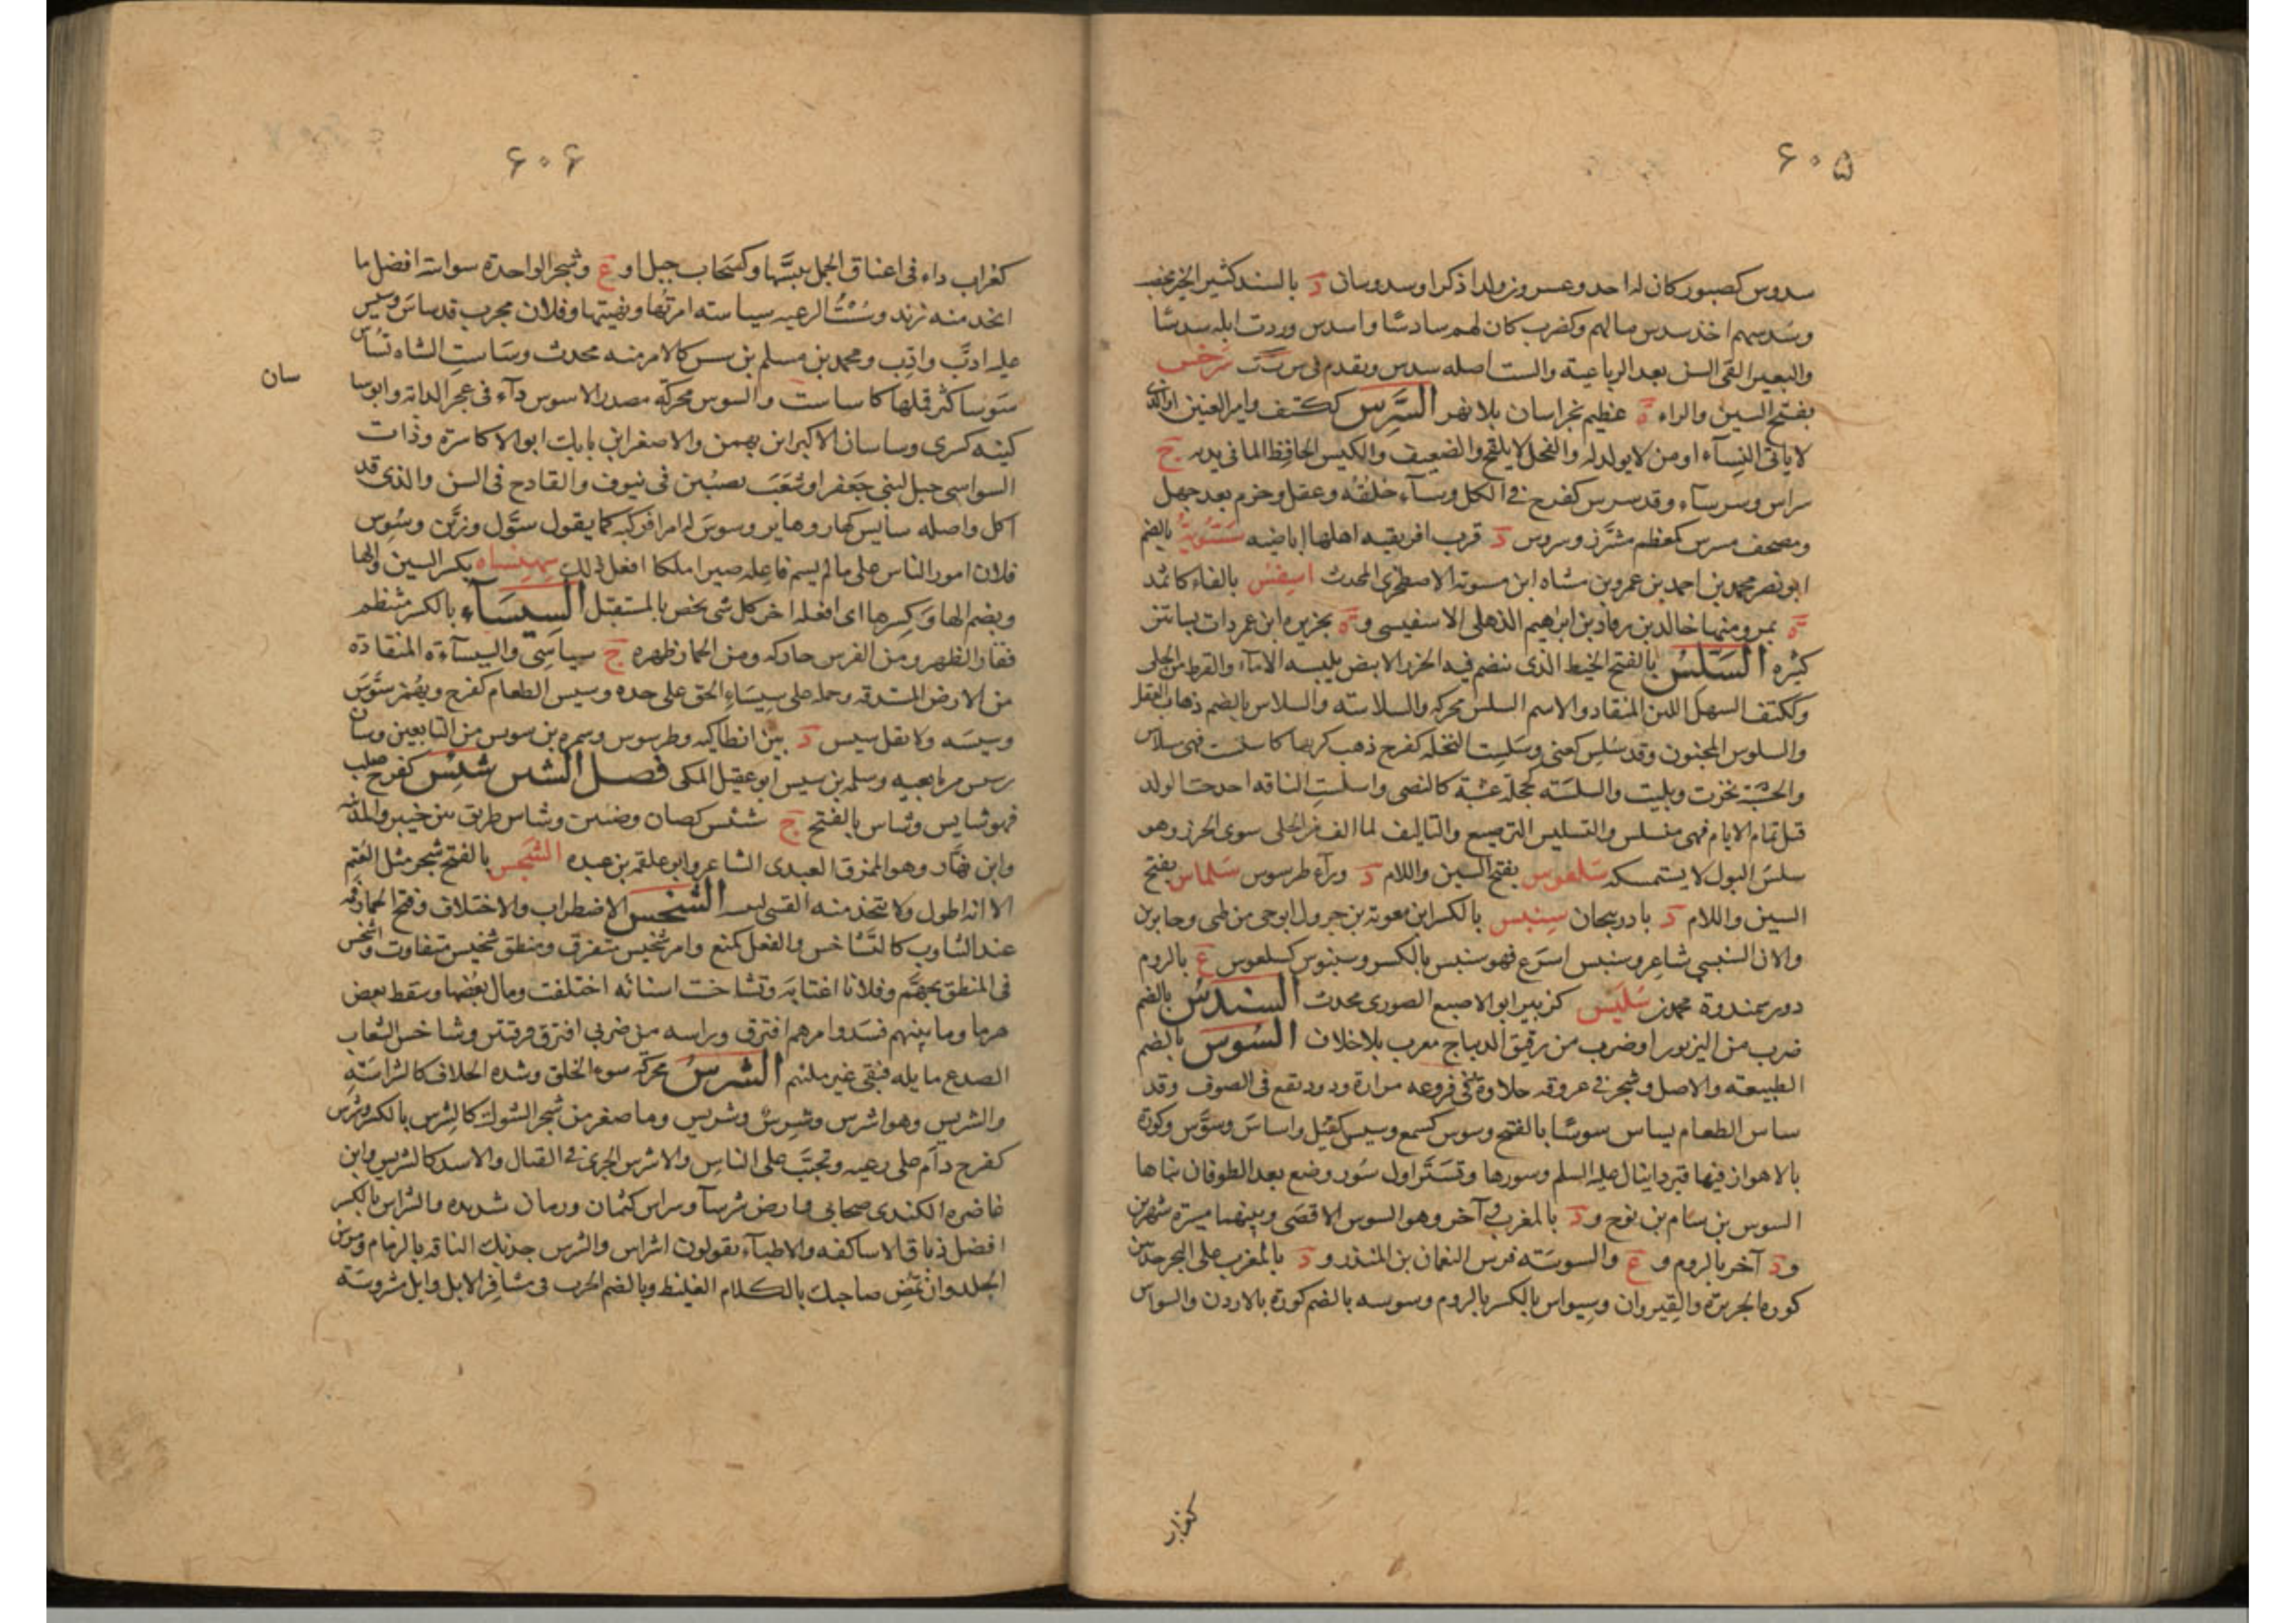 ۶۰۵
سدوس كصبور كان له احد وعسروزولدا ذكرا وسدوسان د بالسند كثير الخير مخصب
وسدسهم اخذ سدس مالهم وكضرب كان لهم سادسًا واسدس وردت ابله سدسًا
والبعير القى السن بعد الرباعية والست اصله سدس وتقدم فى س ت ت سرخس
بفتح السين والراء ة عظيم بخراسان بلا نهر السَّرِس ككتف وامير العنين او الذى
لا ياتى النساء او من لا يولد له والفحل لا يلقح والضعيف والكيس الحافظ لما فى يده ج
سراس وسرساء وقد سرس كفرح فى الكل وساء خلقه وعقل وحزم بعد جهل
ومصحف مسرس كمعظم مشرّز وسروس د قرب افريقيه اهلها اباضيه سستويه بالضم
ابونصر محمد بن احمد بن عمرو بن مشاه ابن مسوته الاصطخرى المحدث اسفس بالفاء كاثمد
ة بمرو منها خالد بن رقاد بن ابراهيم الذهلى الاسفيسى وة بجزيره ابن عمر ذات بساتين
كثيره السَلسُ بالفتح الخيط الذى ينضم فيه الخرز الابيض يلبسه الاماء والقرط من الحلى
وككتف السهل اللين المنقاد والاسم السلس محركه والسلاسته والسلاس بالضم ذهاب العقل
والسلوس المجنون وقد سُلِس كعنى وسلِست النخله كفرح ذهب كربها كاسلست فهى مسلاس
والخشبة نخزت وبليت والسلسته كخجلة عشبة كالنصى واسلست الناقه اخدجت الولد
قبل تمام الايام فهى مسلس والتسليس الترصيع والتاليف لما الف من الحلى سوى الخرز وهو
سلس البول لا يستمسكه سلعوس بفتح السين واللام د وراء طرسوس سلماس بفتح
السين واللام د باذربيجان سِنبس بالكسر ابن معوية بن جرول ابوحى من طى وجابر بن
والان السنبسى شاعر وسنبس اسرع فهو سنبس بالكسر وسينوس كسلعوس ع بالروم
دون سمندوة محمد بن سُليس كزبير ابو الاصبع الصورى محدث السندسُ بالضم
ضرب من البزيون او ضرب من رقيق الديباج معرب بلا خلاف السُوس بالضم
الطبيعته والاصل وشجر فى عروقه حلاوة وفى فروعه مرارة ودود تقع فى الصوف وقد
ساس الطعام يساس سوسًا بالفتح وسوس كسمع وسيس كقيل واساس وسوّس وكورة
بالاهواز فيها قبر دانيال عليه السلم وسورها وتستر اول سُور وضع بعد الطوفان بناها
السوس بن سام بن نوح ود بالمغرب آخر وهو السوس الاقصى وبينهما مسيرة شهرين
ود آخر بالروم وع والسوسته فرس النعمان بن المنذر ود بالمغرب على البحر حد بين
كورة الجزيرة والقيروان وسيواس بالكسر بالروم وسوسه بالضم كورة بالاردن والسواس
كغراب
۶۰۶
كغراب داء فى اعناق الخيل ييبسها وكسحاب جبل او ع وشجر الواحدة سواسة افضل ما
اتخذ منه زند وسُستُ الرعيه سياسته امرتها ونهيتها وفلان مجرب قد ساس وسيس
عليه ادّب واُدِّب ومحمد بن مسلم بن سس كالامر منه محدث وساست الشاه تساس
سان
سوسا كثر قملها كاساست والسوس محركه مصدر الاسوس داء فى عجز الدابه وابوسا
كنيه كسرى وساسان الاكبر ابن بهمن والاصغر ابن بابك ابو الاكاسرة وذات
السواسى جبل لبنى جعفر او شعب نصبين فى نيوف والقادح فى السن والذى قد
اكل واصله سايس كهار وهاير وسوس له امرا فركبه كما يقول سوّل وزيّن وسُوس
فلان امور الناس على ما لم يسم فاعله صير ملكا افعل ذلك سِهنساه بكسر السين والها
وبضم الها وكسرها اى افعله اخر كل شى يخص بالمستقبل السِيسَاء بالكسر منتظم
فقار الظهر ومن الفرس حاركه ومن الحمار ظهره ج سياسى والسيساءة المنقادة
من الارض المستدقه وحمله على سيساء الحق على حده وسيس الطعام كفرح ويهمز سوّس
وسيسه ولا تقل سيس د بين انطاكيه وطرسوس وسمره بن سويس من التابعين وسان
رسس من ما بجبيه وسلمه بن سيس ابوعقيل المكى فصل الشين شئس كفرح صلب
فهو شايس وشاس بالفتح ج شئس كضان وضئين وشاس طريق بين خيبر والمدينه
وابن نهار وهو الممزق العبدى الشاعر وابو علقمه بن عبده الشجس بالفتح شجر مثل العُتم
الا انه اطول ولا تتخذ منه القسى ليبسه الشخس الاضطراب والاختلاف وفتح الحمار فمه
عند التثاوب كالتشاخس والفعل كمنع وامر شخيس متفرق ومنطق شخيس متفاوت واشخس
فى المنطق تجهّم وفلانا اغتابه وتشاخست اسنانه اختلفت ومال بعضها وسقط بعض
هرما وما بينهم فسد وامرهم افترق وراسه من ضربى افترق فرقتين وشاخس الشعاب
الصدع مايله فبقى غير ملتئم الشرسُ محركه سوء الخلق وشده الخلاف كالشراسته
والشريس وهو اشرس وشرِسٌ وشريس وما صغر من شجر الشوك كالشِرس بالكسر وشرس
كفرح دام على رعيه وتحبّب على الناس والاشرس الجرى فى القتال والاسد كالشريس وابن
غاضره الكندى صحابى وارض شرسا وسراس كثمان ورمان شديده والشراس بالكسر
افضل دباق الاساكفه والاطباء يقولون اشراس والشرس جذبك الناقه بالزمام ومرس
الجلد وان تمض صاحبك بالكلام الغليظ وبالضم الجرب فى مشافر الابل وابل مشروسته